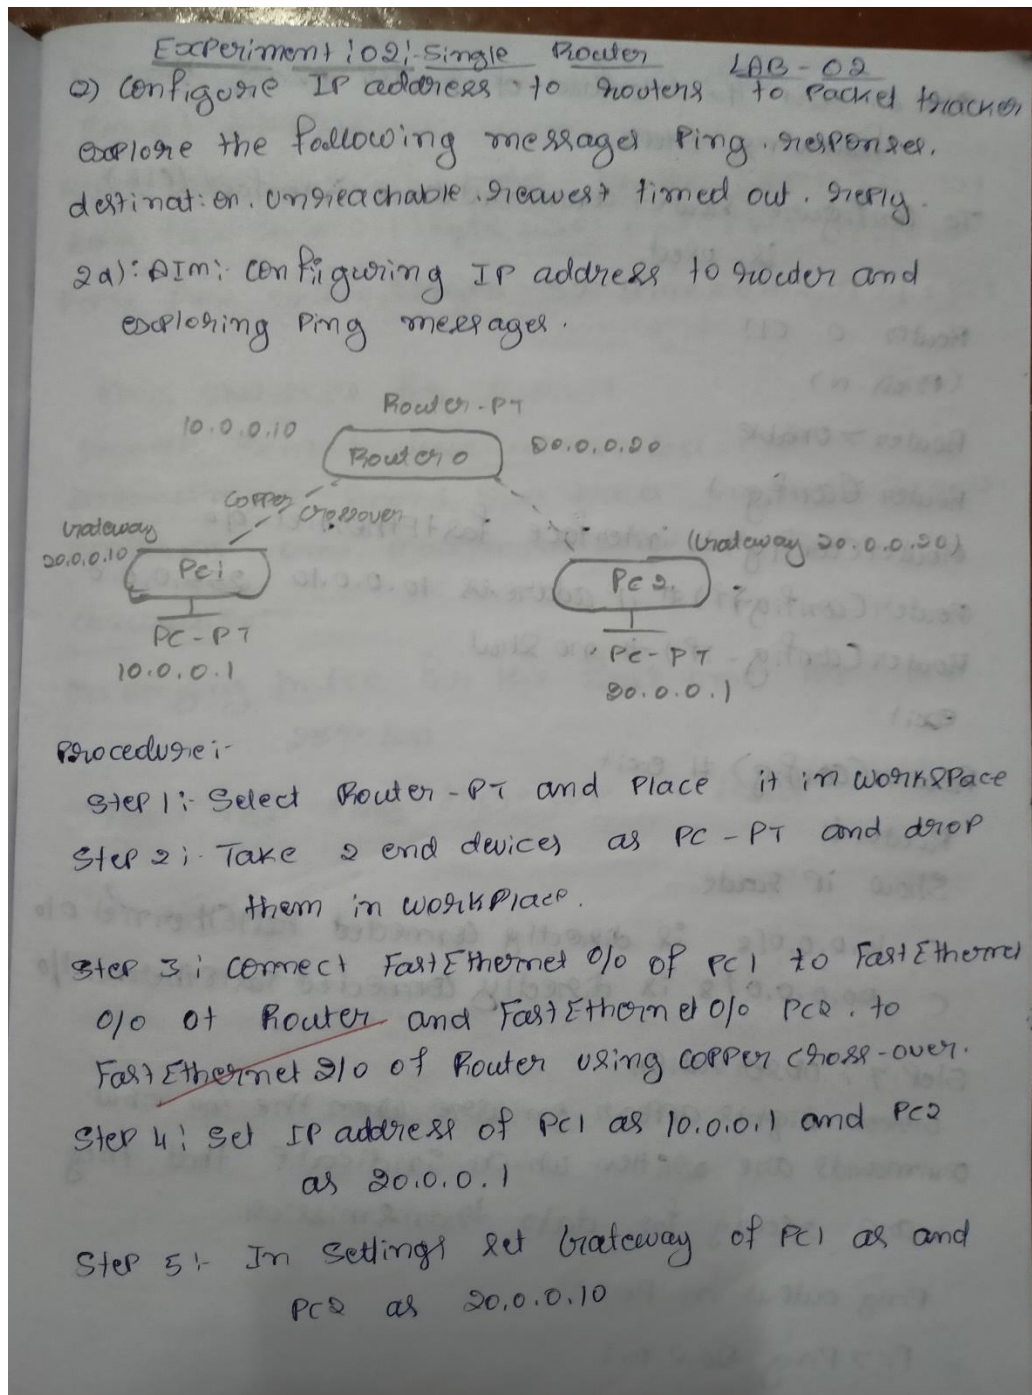 Experiment:02:-Single Router LAB-02
2) Configure IP address to routers to Packet tracker
explore the following messages Ping. responses.
destination. unreachable. reauest timed out. reply.
2a): AIM:- Configuring IP address to router and
exploring Ping messages.
Router-PT
10.0.0.10
Router 0
20.0.0.20
Copper
Crossover
Gateway
20.0.0.10
PC1
(Gateway 20.0.0.20)
PC2
PC-PT
10.0.0.1
PC-PT
20.0.0.1
Procedure:-
Step 1:- Select Router-PT and Place it in workspace
Step 2:- Take 2 end devices as PC-PT and drop
them in workplace.
Step 3: connect FastEthernet 0/0 of PC1 to FastEthernet
0/0 of Router and FastEthernet 0/0 PC2. to
FastEthernet 2/0 of Router using copper cross-over.
Step 4: Set IP address of PC1 as 10.0.0.1 and PC2
as 20.0.0.1
Step 5:- In Settings set Gateway of PC1 as and
PC2 as 20.0.0.10